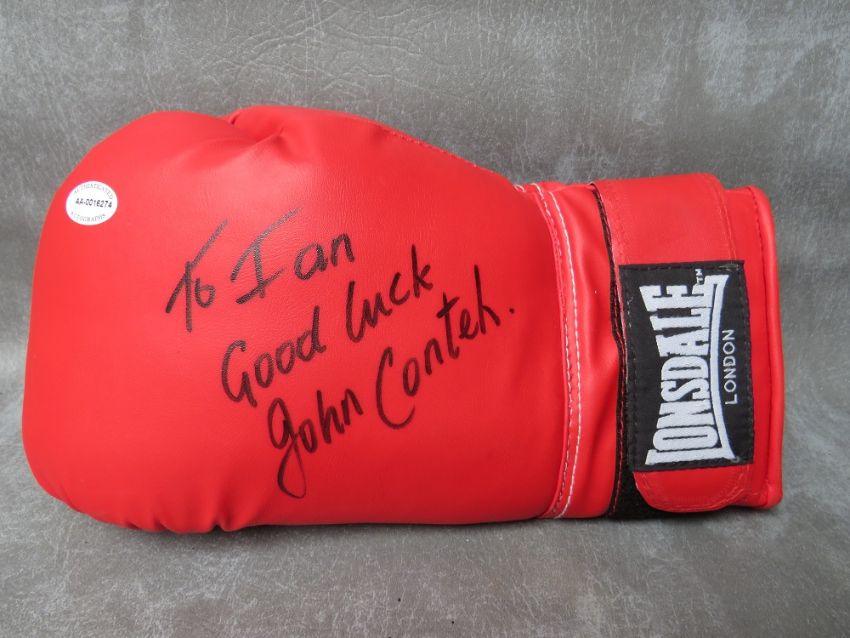 AUTHENTICATED
AA-0016274
AUTOGRAPHS
To Ian
Good luck
John Conteh.
LONSDALE™
LONDON